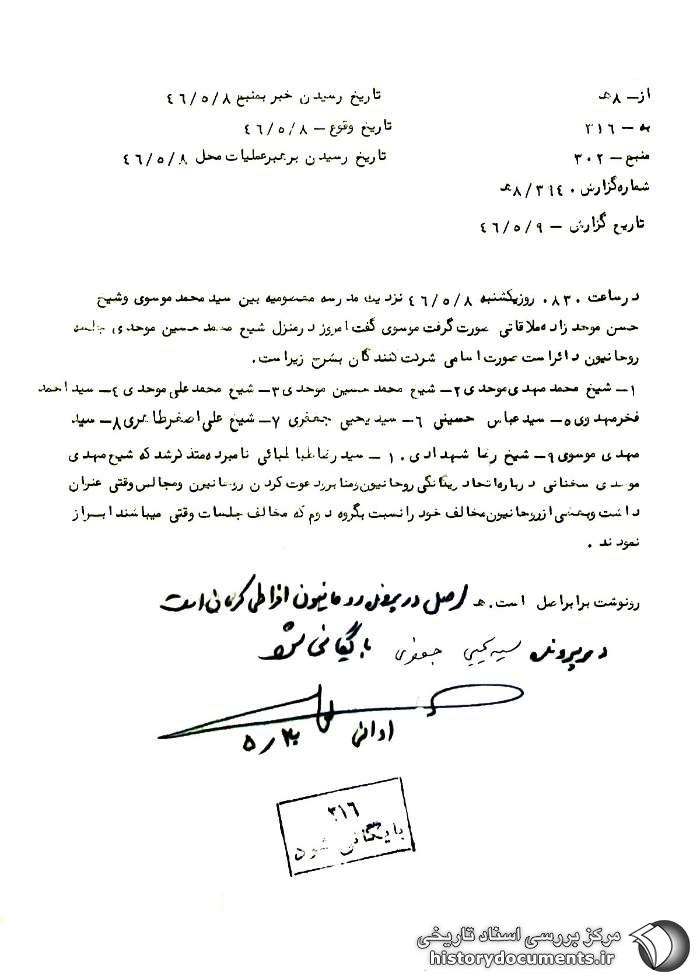 از- ۸هـ
تاریخ رسیدن خبر بمنبع ۴۶/۵/۸
به - ۳۱۶
تاریخ وقوع - ۴۶/۵/۸
منبع - ۳۰۲
تاریخ رسیدن برهبرعملیات محل ۴۶/۵/۸
شماره گزارش ۸/۳۱۴۰هـ
تاریخ گزارش - ۴۶/۵/۹
درساعت ۰۸۳۰ روزیکشنبه ۴۶/۵/۸ نزدیک مدرسه معصومیه بین سید محمد موسوی وشیخ
حسن موحد زاده ملاقاتی صورت گرفت موسوی گفت امروز درمنزل شیخ محمد حسین موحدی جلسه
روحانیون دائراست صورت اسامی شرکت کنندگان بشرح زیراست.
۱- شیخ محمد مهدی موحدی ۲- شیخ محمد حسین موحدی ۳- شیخ محمد علی موحدی ۴- سید احمد
فخرمهدوی ۵- سید عباس حسینی ۶- سید یحیی جعفری ۷- شیخ علی اصغرطاهری ۸- سید
مهدی موسوی ۹- شیخ رضا شهدادی ۱۰- سید رضاطباطبائی نامبرده متذکرشد که شیخ مهدی
موحدی سخنانی درباره اتحاد ویگانگی روحانیون ومنابرو دعوت کردن روحانیون ومجالس وقتی عنوان
داشت وبعضی ازروحانیون مخالف خود را نسبت بگروه دوم که مخالف جلسات وقتی میباشند ابراز
نمودند .
رونوشت برابراصل است. هـ اصل در پرونده روحانیون افراطی کرمان است
در پرونده سید یحیی جعفری بایگانی شود
۵
۳۱۶
بایگانی شود
مرکز بررسی اسناد تاریخی
historydocuments.ir